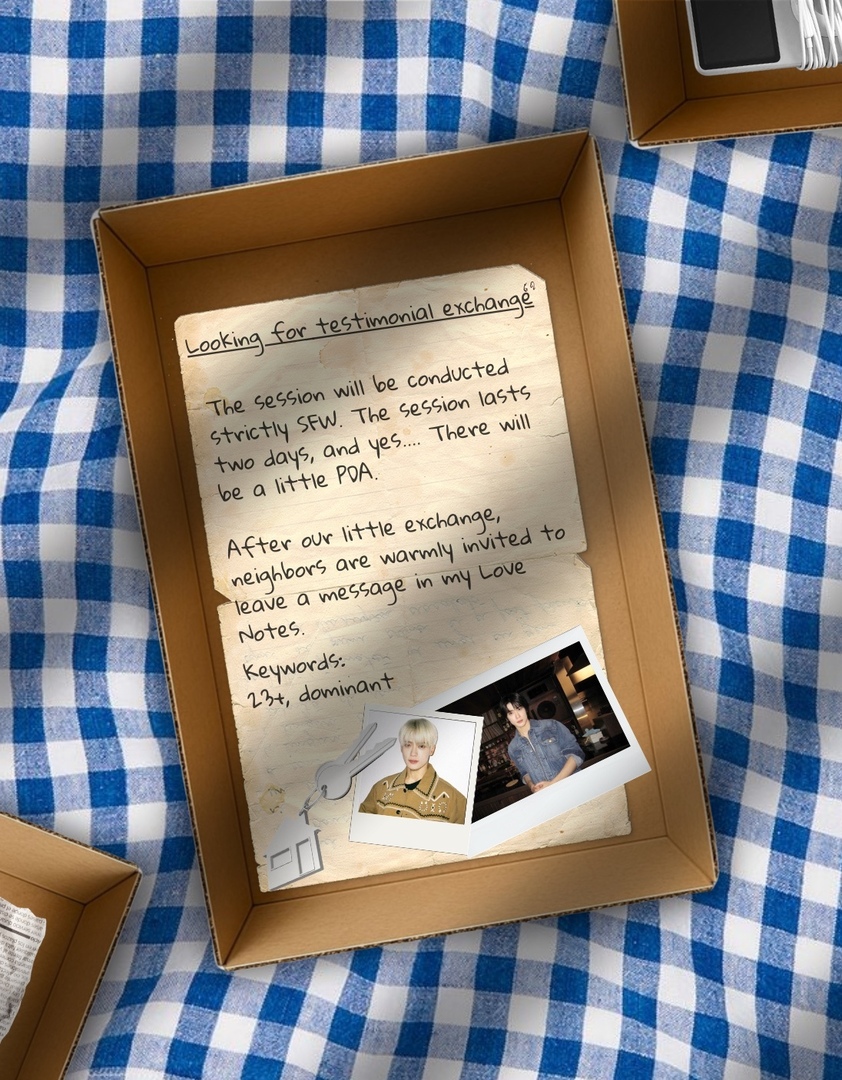 Looking for testimonial exchange
The session will be conducted
strictly SFW. The session lasts
two days, and yes.... There will
be a little PDA.
After our little exchange,
neighbors are warmly invited to
leave a message in my Love
Notes.
Keywords:
23+, dominant